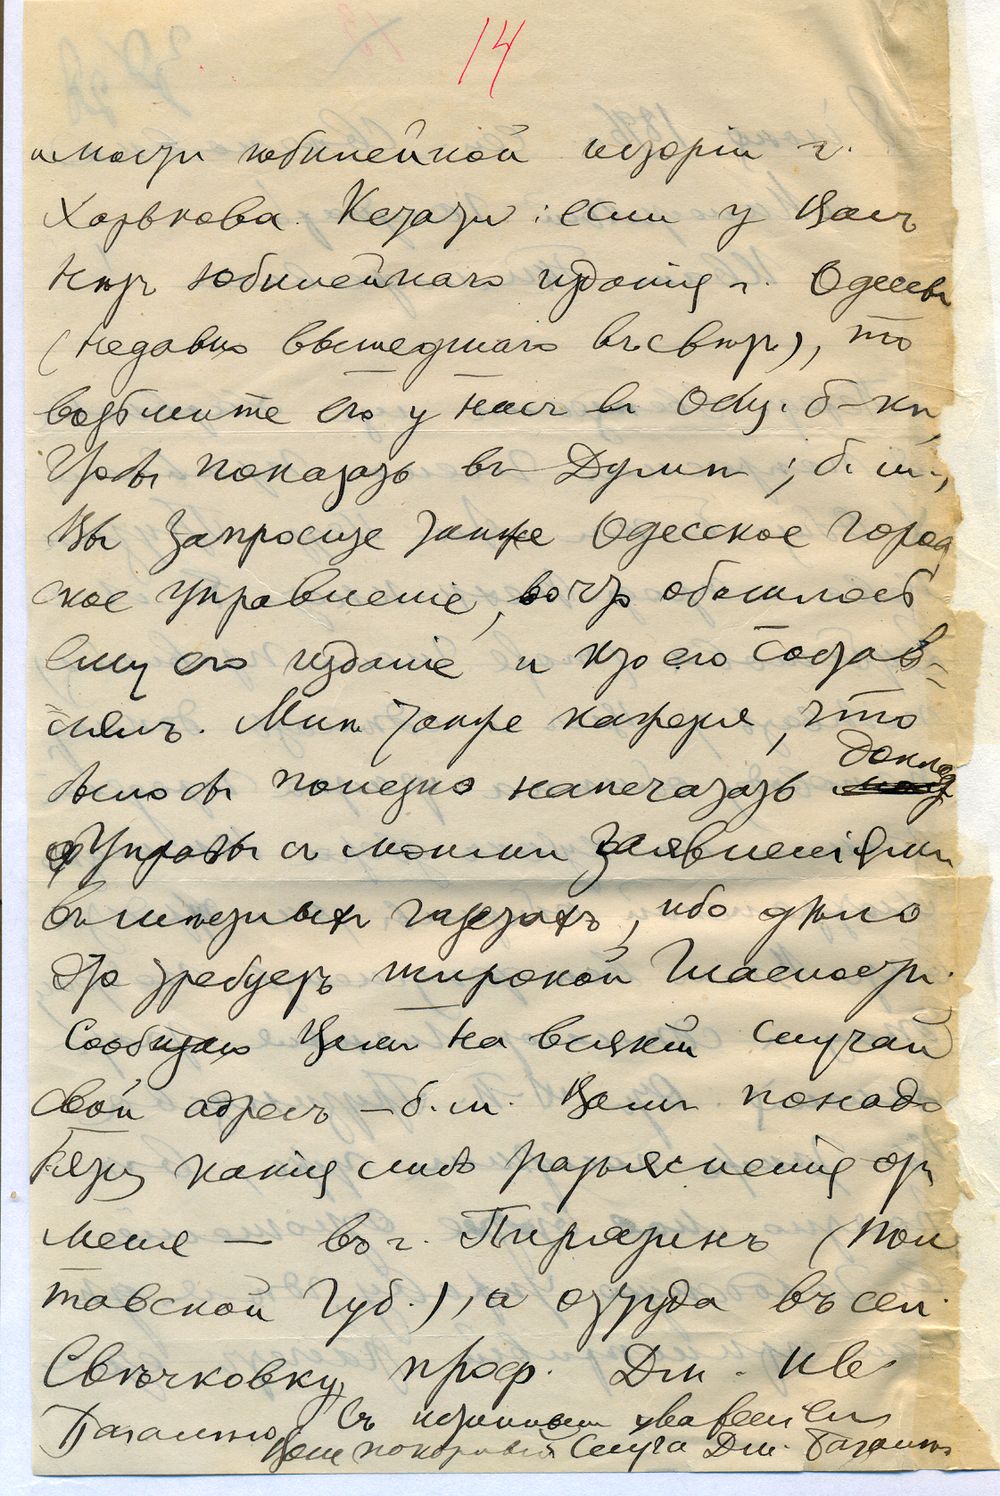 14
имости юбилейной исторіи г.
Харькова. Кстати: если у Васъ
нѣтъ юбилейнаго изданія г. Одессы
(недавно вышедшаго въ свѣтъ), то
возьмите его у насъ въ Общ. б-кѣ,
чтобы показать въ Думѣ; б. м.,
Вы запросите также Одесское город
ское Управленіе, во что обошлось
ему его изданіе и кто его состав-
лялъ. Мнѣ также кажется, что
было бы полезно напечатать доклад
Управы съ моими заявленіями
въ мѣстныхъ газетахъ, ибо дѣло
это требуетъ широкой гласности.
Сообщаю Вамъ на всякій случай
свой адресъ — б. м. Вамъ понадо
бятся какія либо разъясненія отъ
меня — въ г. Пирятинъ (Пол
тавской Губ.), а оттуда въ сел.
Свѣчковку проф. Дм. Ив.
Багалѣю. Съ истиннымъ уваженіемъ
Вашъ покорный слуга Дм. Багалѣй